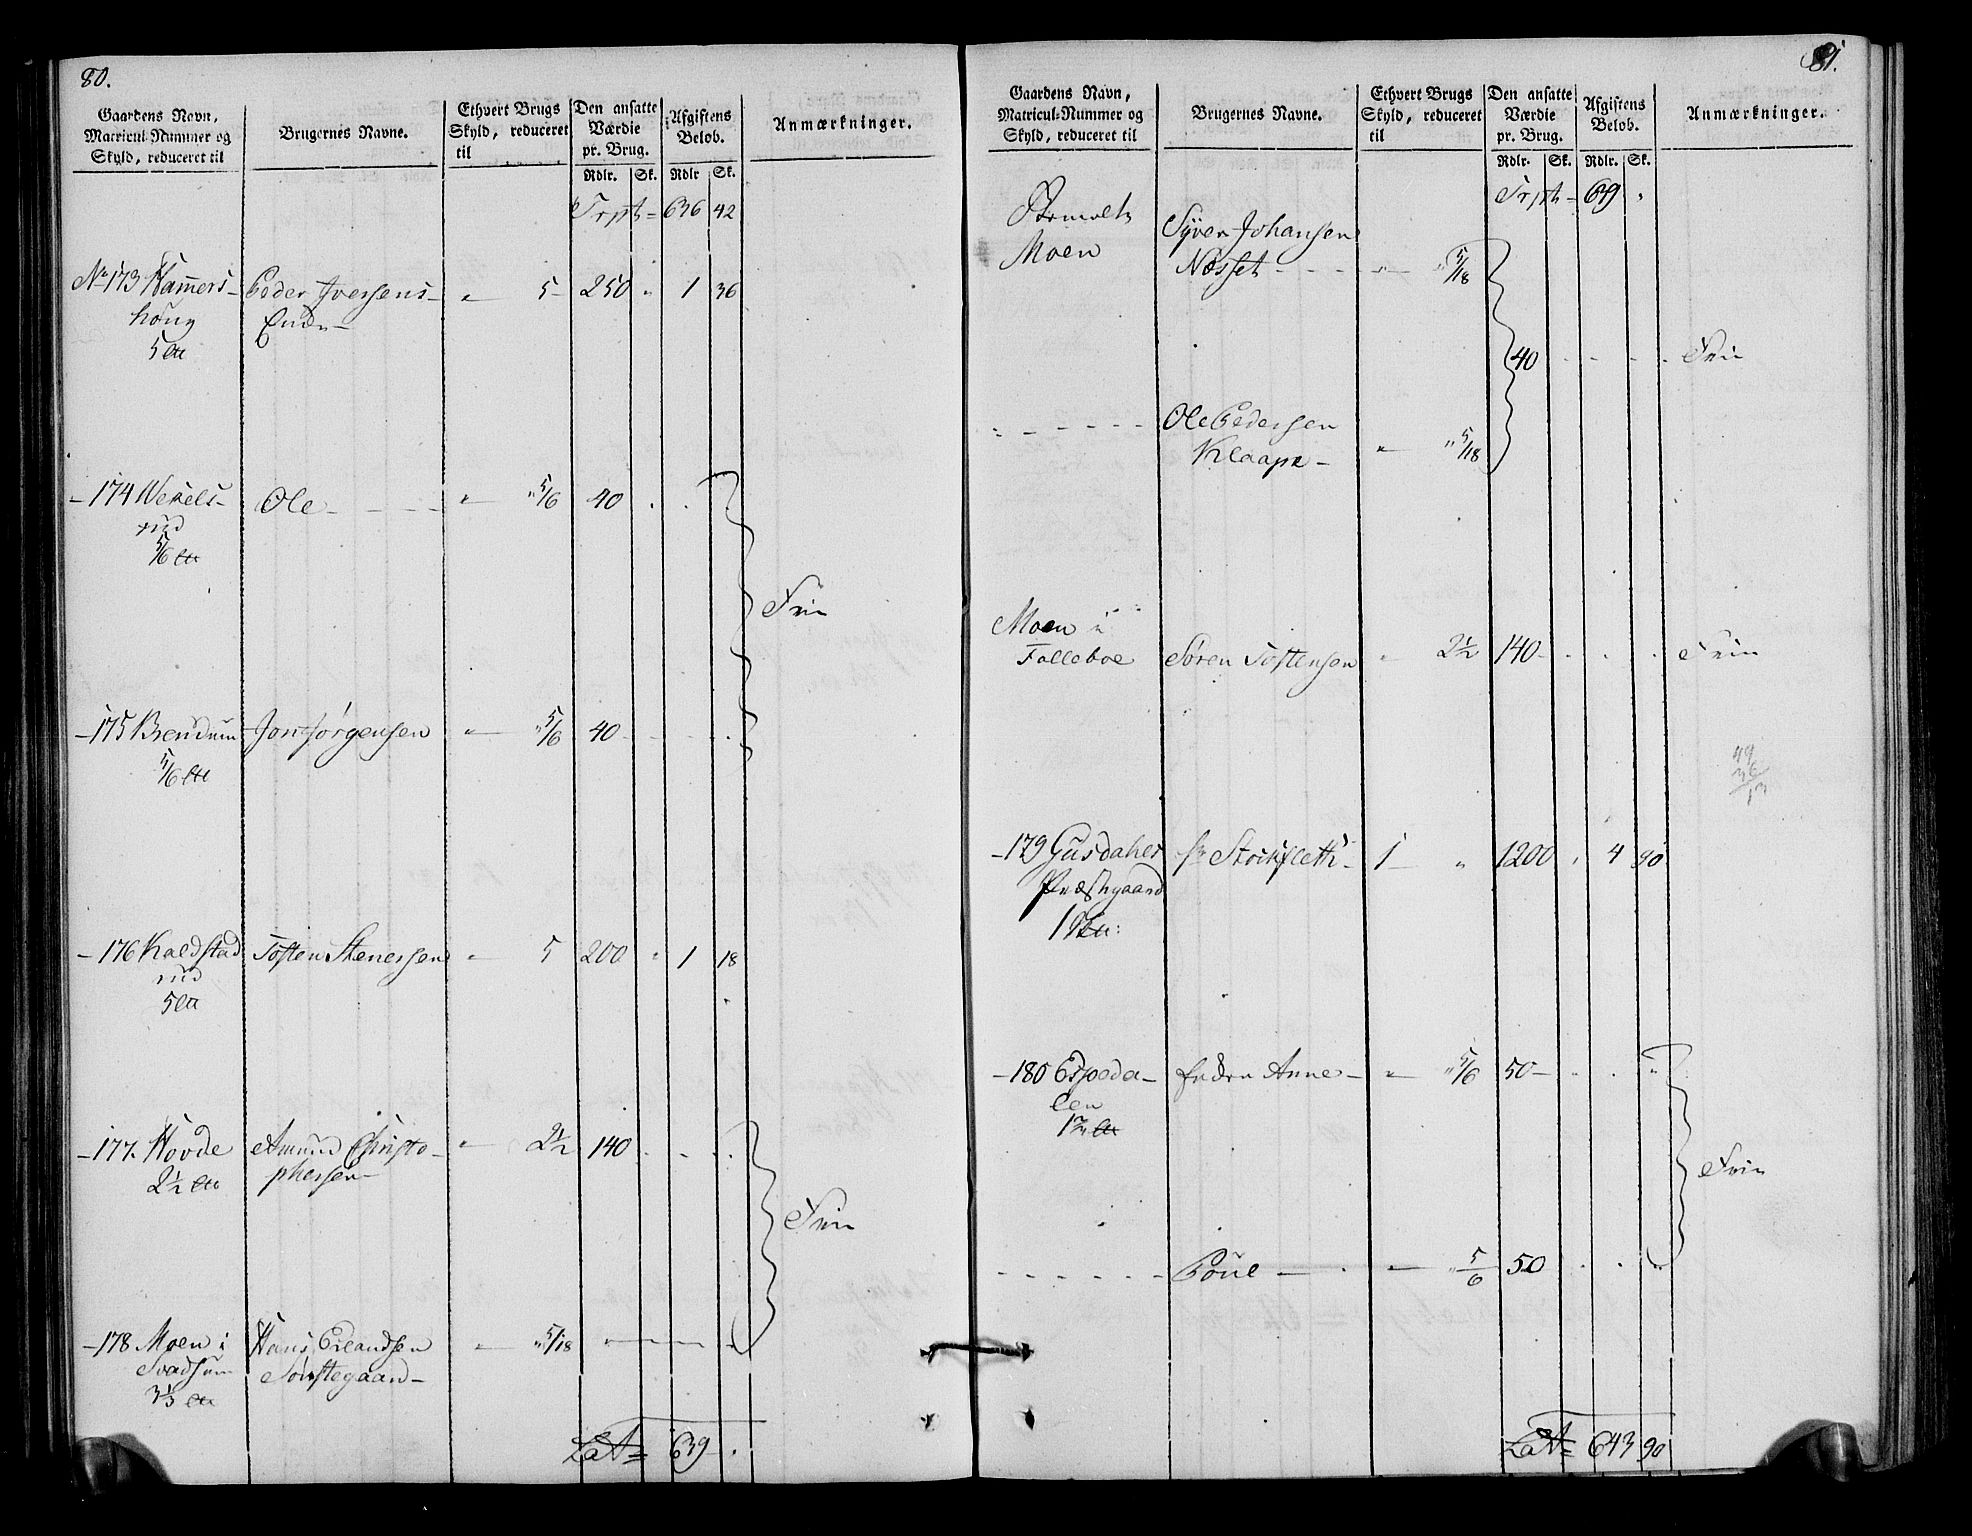 80.
Gaardens Navn,
Matricul-Nummer og
Skyld, reduceret til
Brugernes Navne.
Ethvert Brugs
Skyld, reduceret
til
Den ansatte
Værdie
pr. Brug.
Afgiftens
Beløb.
Anmærkninger.
Rdlr. Sk. Rdlr Sk.
Trpt = 636 42
No 173 Hammers- Peder Iversens- " 5- 250 " 1 36
houg Enke-
5
- 174 Wekels- Ole - - - - " " 5/6 40 . . .
rud
5/6
Frie
- 175 Brendum Jon Jørgensen " " 5/6 40 - - - -
5/6
- 176 Kaldstad Tosten Stenersen " 5 200 " 1 18
rud
5
- 177. Hovde Amund Christo- " 2½ 140 . - - -
2½ phersen-
Frie
- 178 Moen i Hans Erlandsen " " 5/18
Svadsum Sørstegaard-
3⅓
Lat = 639 .
81.
Gaardens Navn,
Matricul-Nummer og
Skyld, reduceret til
Brugernes Navne.
Ethvert Brugs
Skyld, reduceret
til
Den ansatte
Værdie
pr. Brug.
Afgiftens
Beløb.
Anmærkninger.
Rdlr. Sk. Rdlr. Sk.
Trpt = 639 "
Syver Johansen
Moen Næsset - - - " " 5/18
40 - - - - Frie
- - - - - - Ole Pedersen
Klaape - " " 5/18
Moen i
Folleboe Søren Tostensen " 2½ 140 - . . . Frie
49
36
13
- 179 Gusdahls Hr Stockfleth - 1 - " 1200 " 4 90
Præstgaard
1
- 180 Espeda- Enken Anne - " " 5/6 50 - . . "
len
1⅔
Frie
- - - - - - Poul - " " 5/6 50 . . "
Lat = 643 90